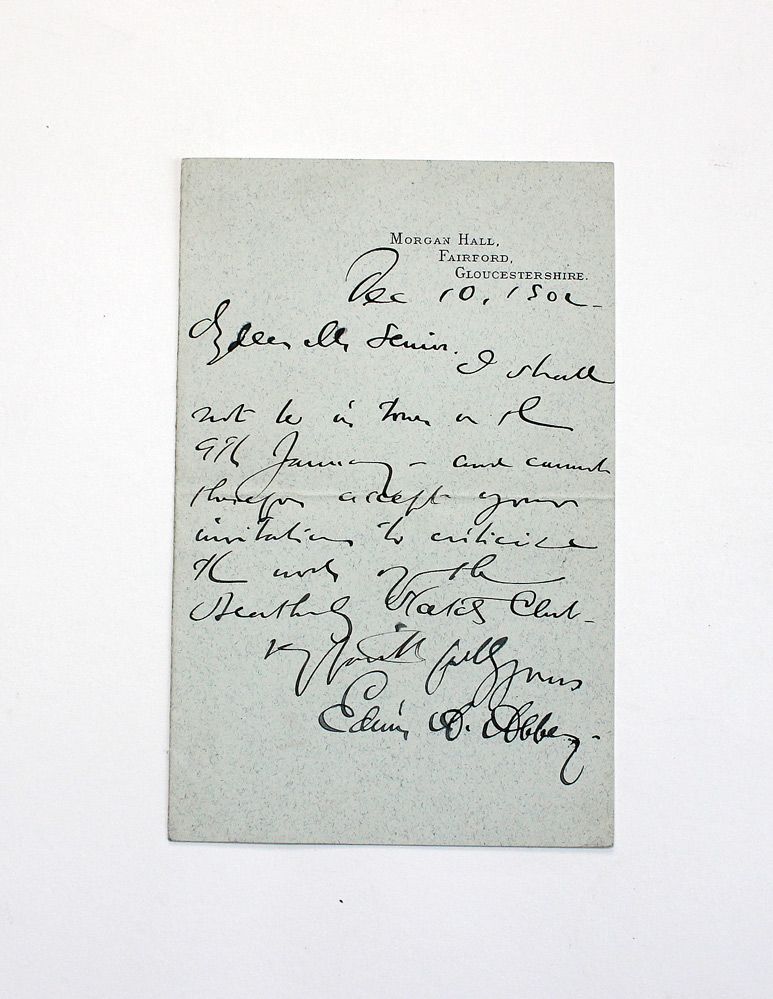 MORGAN HALL,
FAIRFORD,
GLOUCESTERSHIRE.
Dec 10, 1902
My dear Mr Senior. I shall
not be in town on the
9th January – and cannot
therefore accept your
invitation to criticize
the work of the
Sketch Club –
Vy faithfully yours
Edwin A. Abbey.